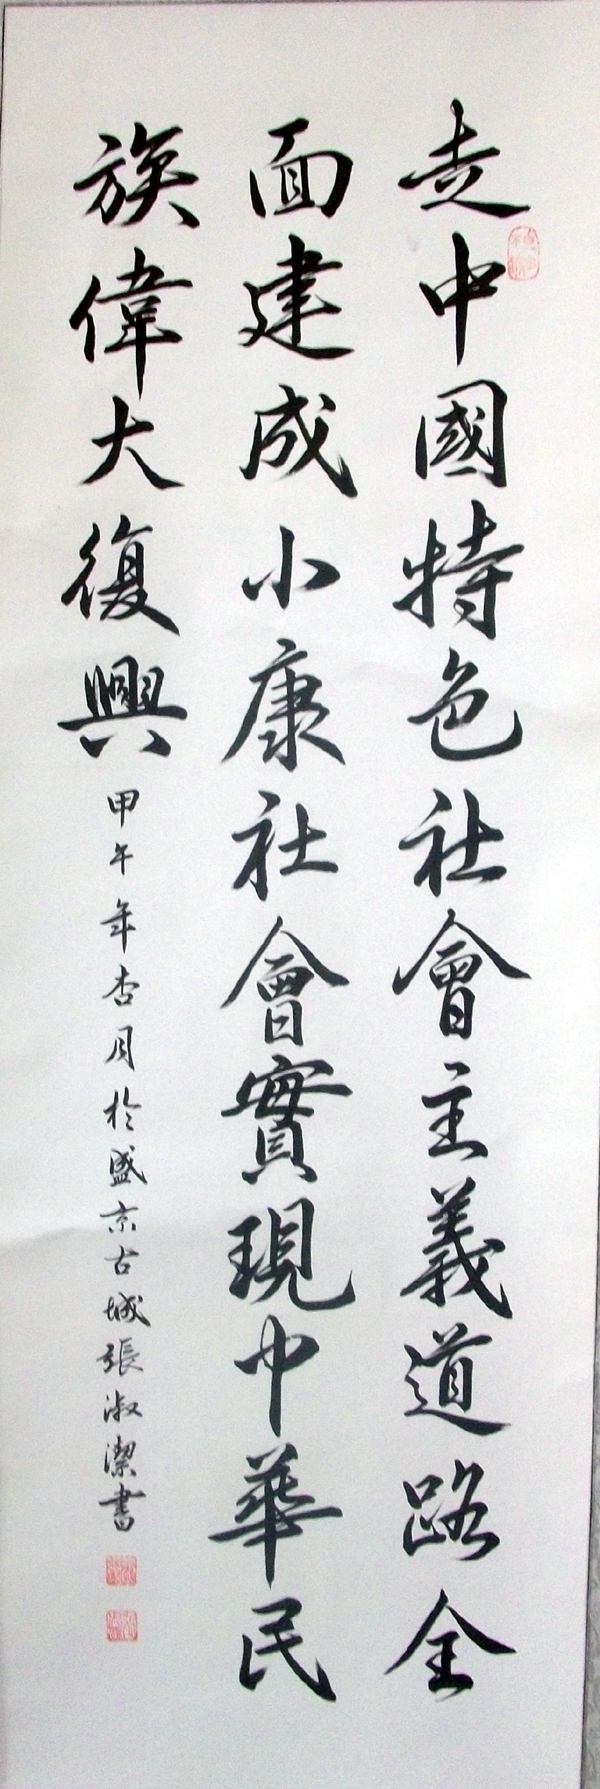 走中國特色社會主義道路全
面建成小康社會實現中華民
族偉大復興
甲午年杏月於盛京古城張淑潔書